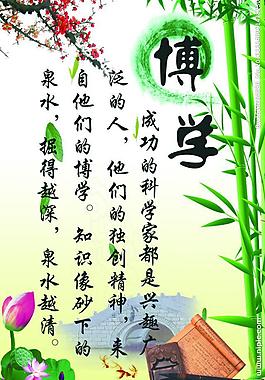 博学
成功的科学家都是兴趣广
泛的人，他们的独创精神，来
自他们的博学。知识像砂下的
泉水，掘得越深，泉水越清。
www.nipic.com